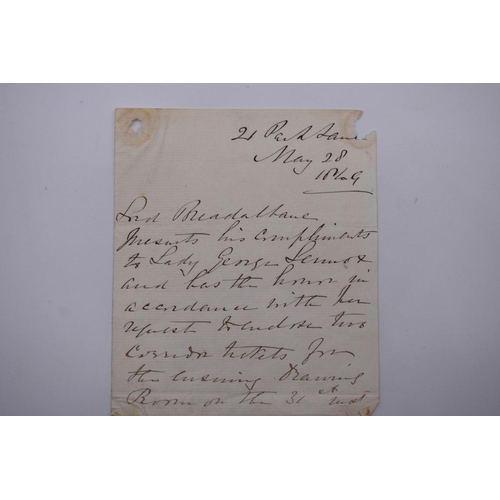 21 Park Lane
May 28
Lord Breadalbane
presents his compliments
to Lady George Lennox
and has the honor in
accordance with her
request to enclose two
corridor tickets for
the ensuing Drawing
Room on the 31st inst